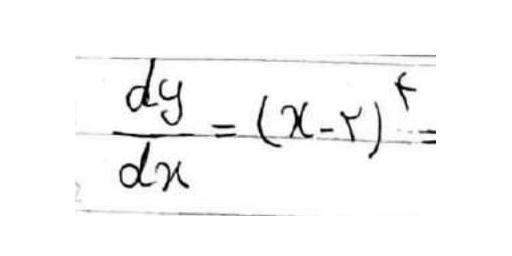 dy/dx = (x-۲)^۴ =